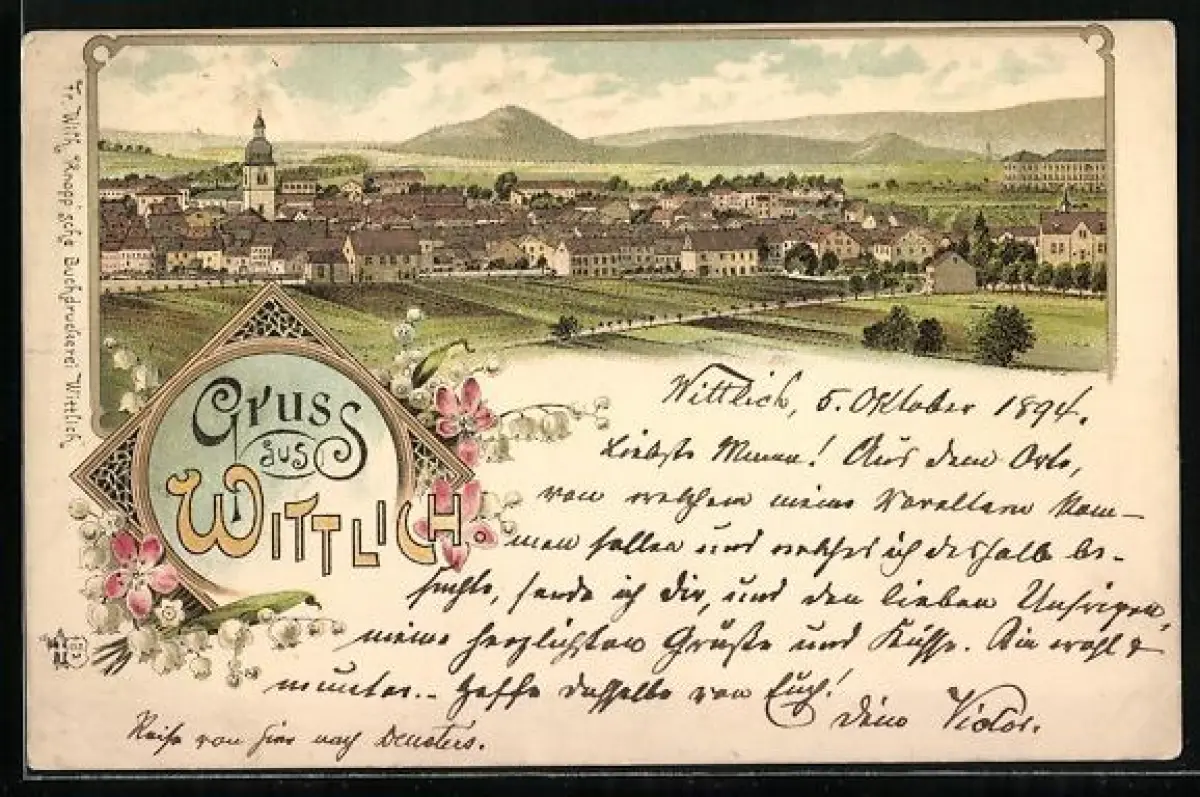 Fr. Wilh. Knopp'sche Buchdruckerei Wittlich
Gruss
aus
Wittlich.
Wittlich, 5. Oktober 1894.
Liebste Mama! Aus dem Orte,
von welchem meine Voreltern kom-
men sollen und welches ich deshalb be-
suchte, sende ich Dir, und den lieben Unsrigen,
meine herzlichsten Grüße und Küsse. Bin wohl &
munter. Hoffe dasselbe von Euch!
Dein Victor.
Reise von hier nach